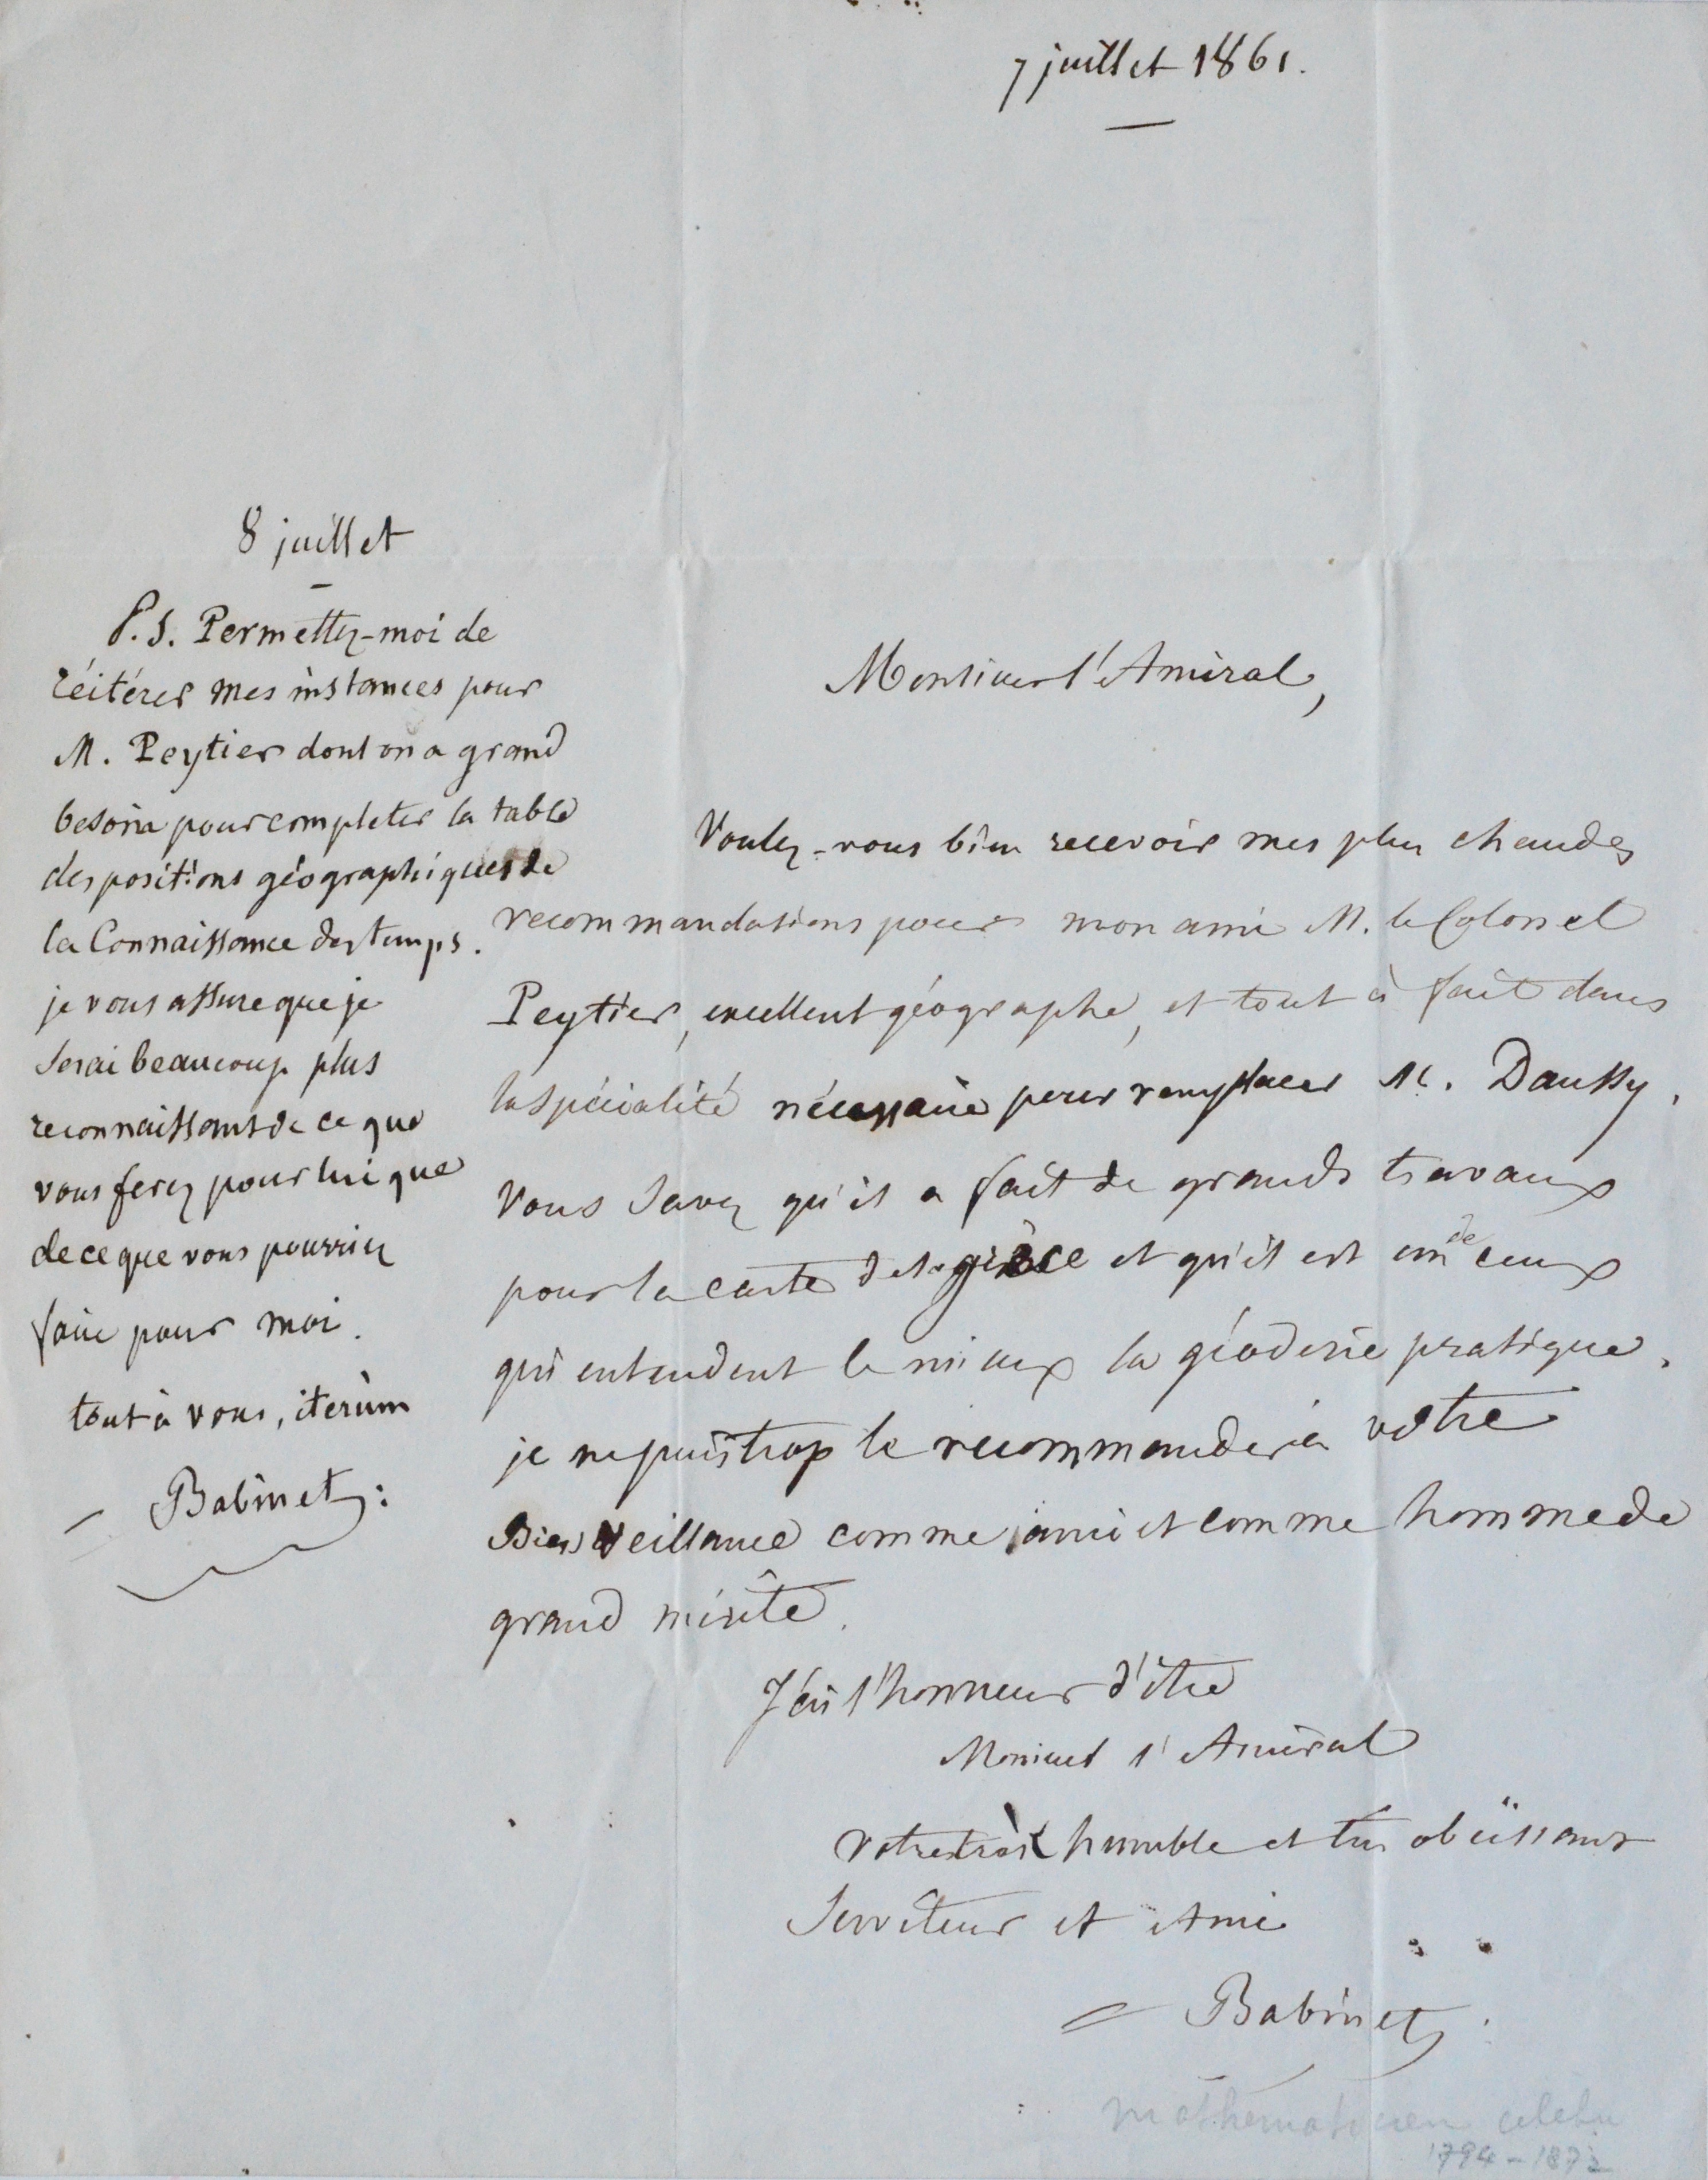 7 juillet 1861.
Monsieur l'Amiral,
Voulez-vous bien recevoir mes plus chaudes
recommandations pour mon ami M. le Colonel
Peytier, excellent géographe, et tout à fait dans
la spécialité nécessaire pour remplacer M. Daussy.
Vous savez qu'il a fait de grands travaux
pour la carte de la grèce et qu'il est un de ceux
qui entendent le mieux la géodésie pratique.
je ne puis trop le recommander à votre
Bienveillance comme ami et comme homme de
grand mérite.
J'ai l'honneur d'être
Monsieur l'Amiral
Votre très humble et très obéissant
Serviteur et Ami
Babinet.
8 juillet
P.S. Permettez-moi de
réitérer mes instances pour
M. Peytier dont on a grand
besoin pour completer la table
des positions géographiques de
la Connaissance des temps.
je vous assure que je
serai beaucoup plus
reconnaissant de ce que
vous ferez pour lui que
de ce que vous pourriez
faire pour moi.
tout à vous, iterùm
Babinet:
mathematicien celebre
1794-1872